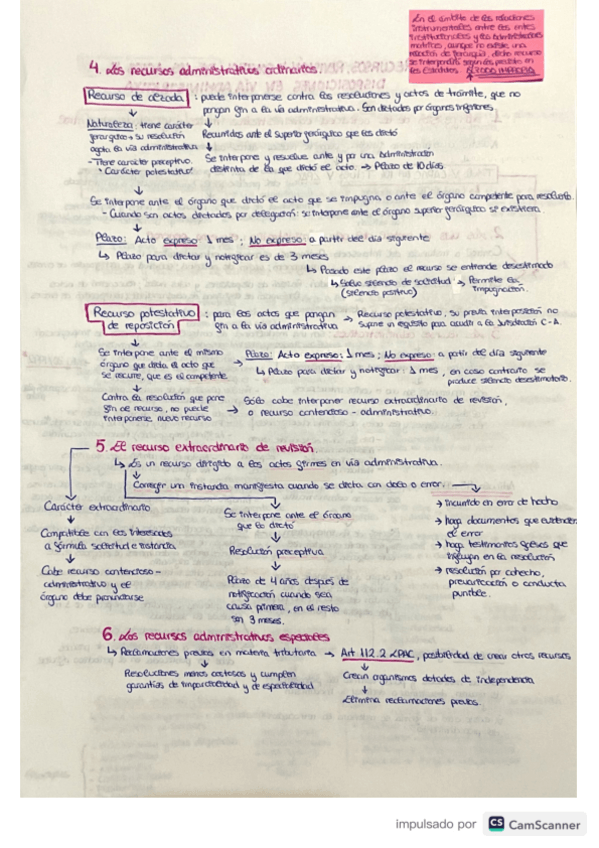 En el ámbito de las relaciones
instrumentales entre los entes
institucionales y las administraciones
matrices, aunque no existe una
relación de jerarquía, dicho recurso
se interpondrá según lo previsto en
los estatutos. ALZADA IMPROPIA
4. Los recursos administrativos ordinarios.
Recurso de alzada : puede interponerse contra las resoluciones y actos de trámite, que no
pongan fin a la vía administrativa. Son dictados por órganos inferiores.
Naturaleza: tiene carácter
jerárquico + su resolución
agota la vía administrativa
- Tiene carácter preceptivo.
• Carácter potestativo
Recurridos ante el superior jerárquico que los dictó
Se interpone y resuelve ante y por una administración
distinta de la que dictó el acto. → Plazo 10 días
Se interpone ante el órgano que dictó el acto que se impugna o ante el órgano competente para resolverlo.
- Cuando son actos dictados por delegación: se interpone ante el órgano superior jerárquico si existiera
Plazo: Acto expreso 1 mes ; No expreso: a partir del día siguiente
↳ Plazo para dictar y notificar es de 3 meses
↳ Pasado este plazo el recurso se entiende desestimado
↳ Salvo silencio de solicitud → Permite la
(silencio positivo) impugnación.
Recurso potestativo
de reposición : para los actos que pongan
fin a la vía administrativa → Recurso potestativo, su previa interposición no
supone un requisito para acudir a la Jurisdicción C-A.
Se interpone ante el mismo
órgano que dicta el acto que
se recurre, que es el competente
→ Plazo: Acto expreso: 1 mes ; No expreso: a partir del día siguiente
↳ Plazo para dictar y notificar: 1 mes, en caso contrario se
produce silencio desestimatorio.
Contra la resolución que pone
fin de recurso, no puede
interponerse nuevo recurso
→ Sólo cabe interponer recurso extraordinario de revisión,
o recurso contencioso-administrativo.
5. El recurso extraordinario de revisión.
↳ Es un recurso dirigido a los actos firmes en vía administrativa.
Corregir una instancia manifiesta cuando se dicta con dolo o error.
Carácter extraordinario
Compatible con los interesados
a formular solicitud e instancia
Cabe recurso contencioso-
administrativo y el
órgano debe pronunciarse
Se interpone ante el órgano
que lo dictó
Resolución preceptiva
Plazo de 4 años después de
notificación cuando sea
causa primera, en el resto
son 3 meses.
→ incurrido en error de hecho
→ haya documentos que evidencien
el error
→ haya testimonios falsos que
influyan en la resolución
→ resolución por cohecho,
prevaricación o conducta
punible.
6. Los recursos administrativos especiales
↳ Reclamaciones previas en materia tributaria → Art 112.2 LPAC, posibilidad de crear otros recursos
Resoluciones menos costosas y cumplen
garantías de imparcialidad y de especialidad
Crean organismos dotados de independencia
Elimina reclamaciones previas.
impulsado por CS CamScanner